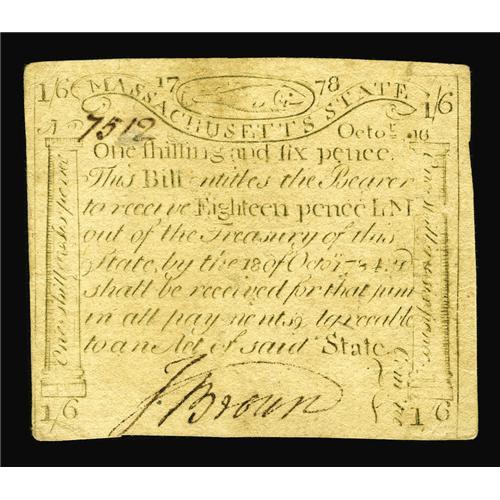 1/6 17 78 1/6
MASSACHUSETTS STATE
7512 Octo.r 16
One shilling and six pence.
This Bill entitles the Bearer
to receive Eighteen pence LM
out of the Treasury of this
State, by the 18 of Octo.r 1784, &
shall be received for that sum
in all payments, agreeable
to an Act of said State
J. Brown
Com.tee
One shill & six pence
1/6 1/6